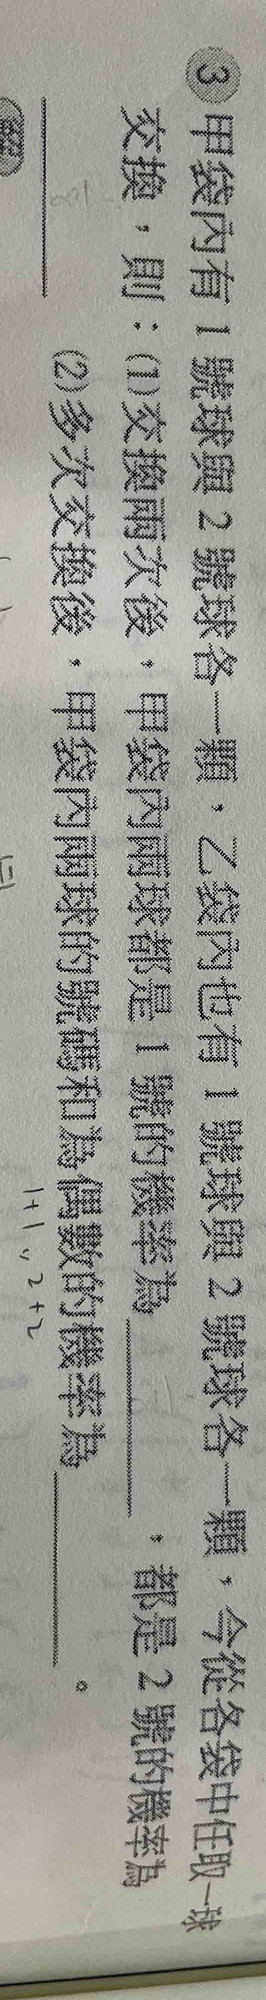 3 甲袋內有 1 號球與 2 號球各一顆，乙袋內也有 1 號球與 2 號球各一顆，今從各袋中任取一球
交換，則：(1)交換兩次後，甲袋內兩球都是 1 號的機率為＿＿＿＿，都是 2 號的機率為
＿＿＿＿ (2)多次交換後，甲袋內兩球的號碼和為偶數的機率為＿＿＿＿。
1+1、2+2